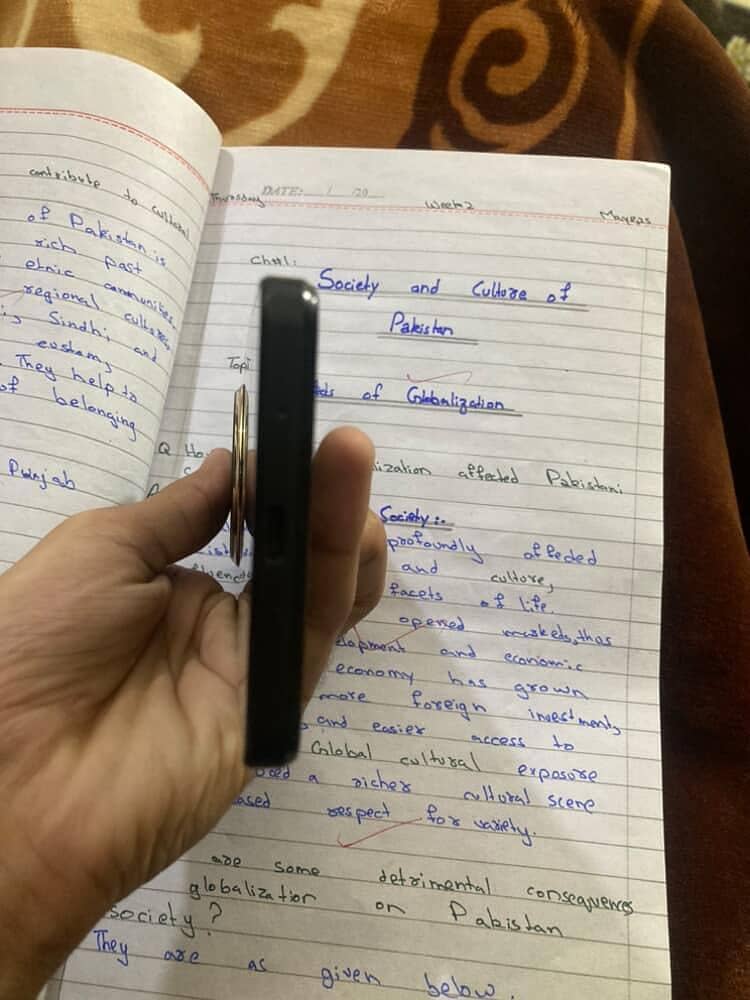 contribute to cultural
of Pakistan is
rich past
etnic communities,
regional cultures
Sindhi, and
customs
They help to
of belonging
Punjab
Thursday DATE: / /20 Week 2
Ch#1:
Society and Culture of
Pakistan
Topi
of Globalization
Q Ho
ization affected Pakistani
Society:-
profoundly affected
and culture,
facets of life.
opened markets, thus
and economic
economy has grown
more foreign investments
and easier access to
Global cultural exposure
a richer cultural scene
respect for variety.
are some detrimental consequences
globalization on Pakistan
society?
They are as given below.